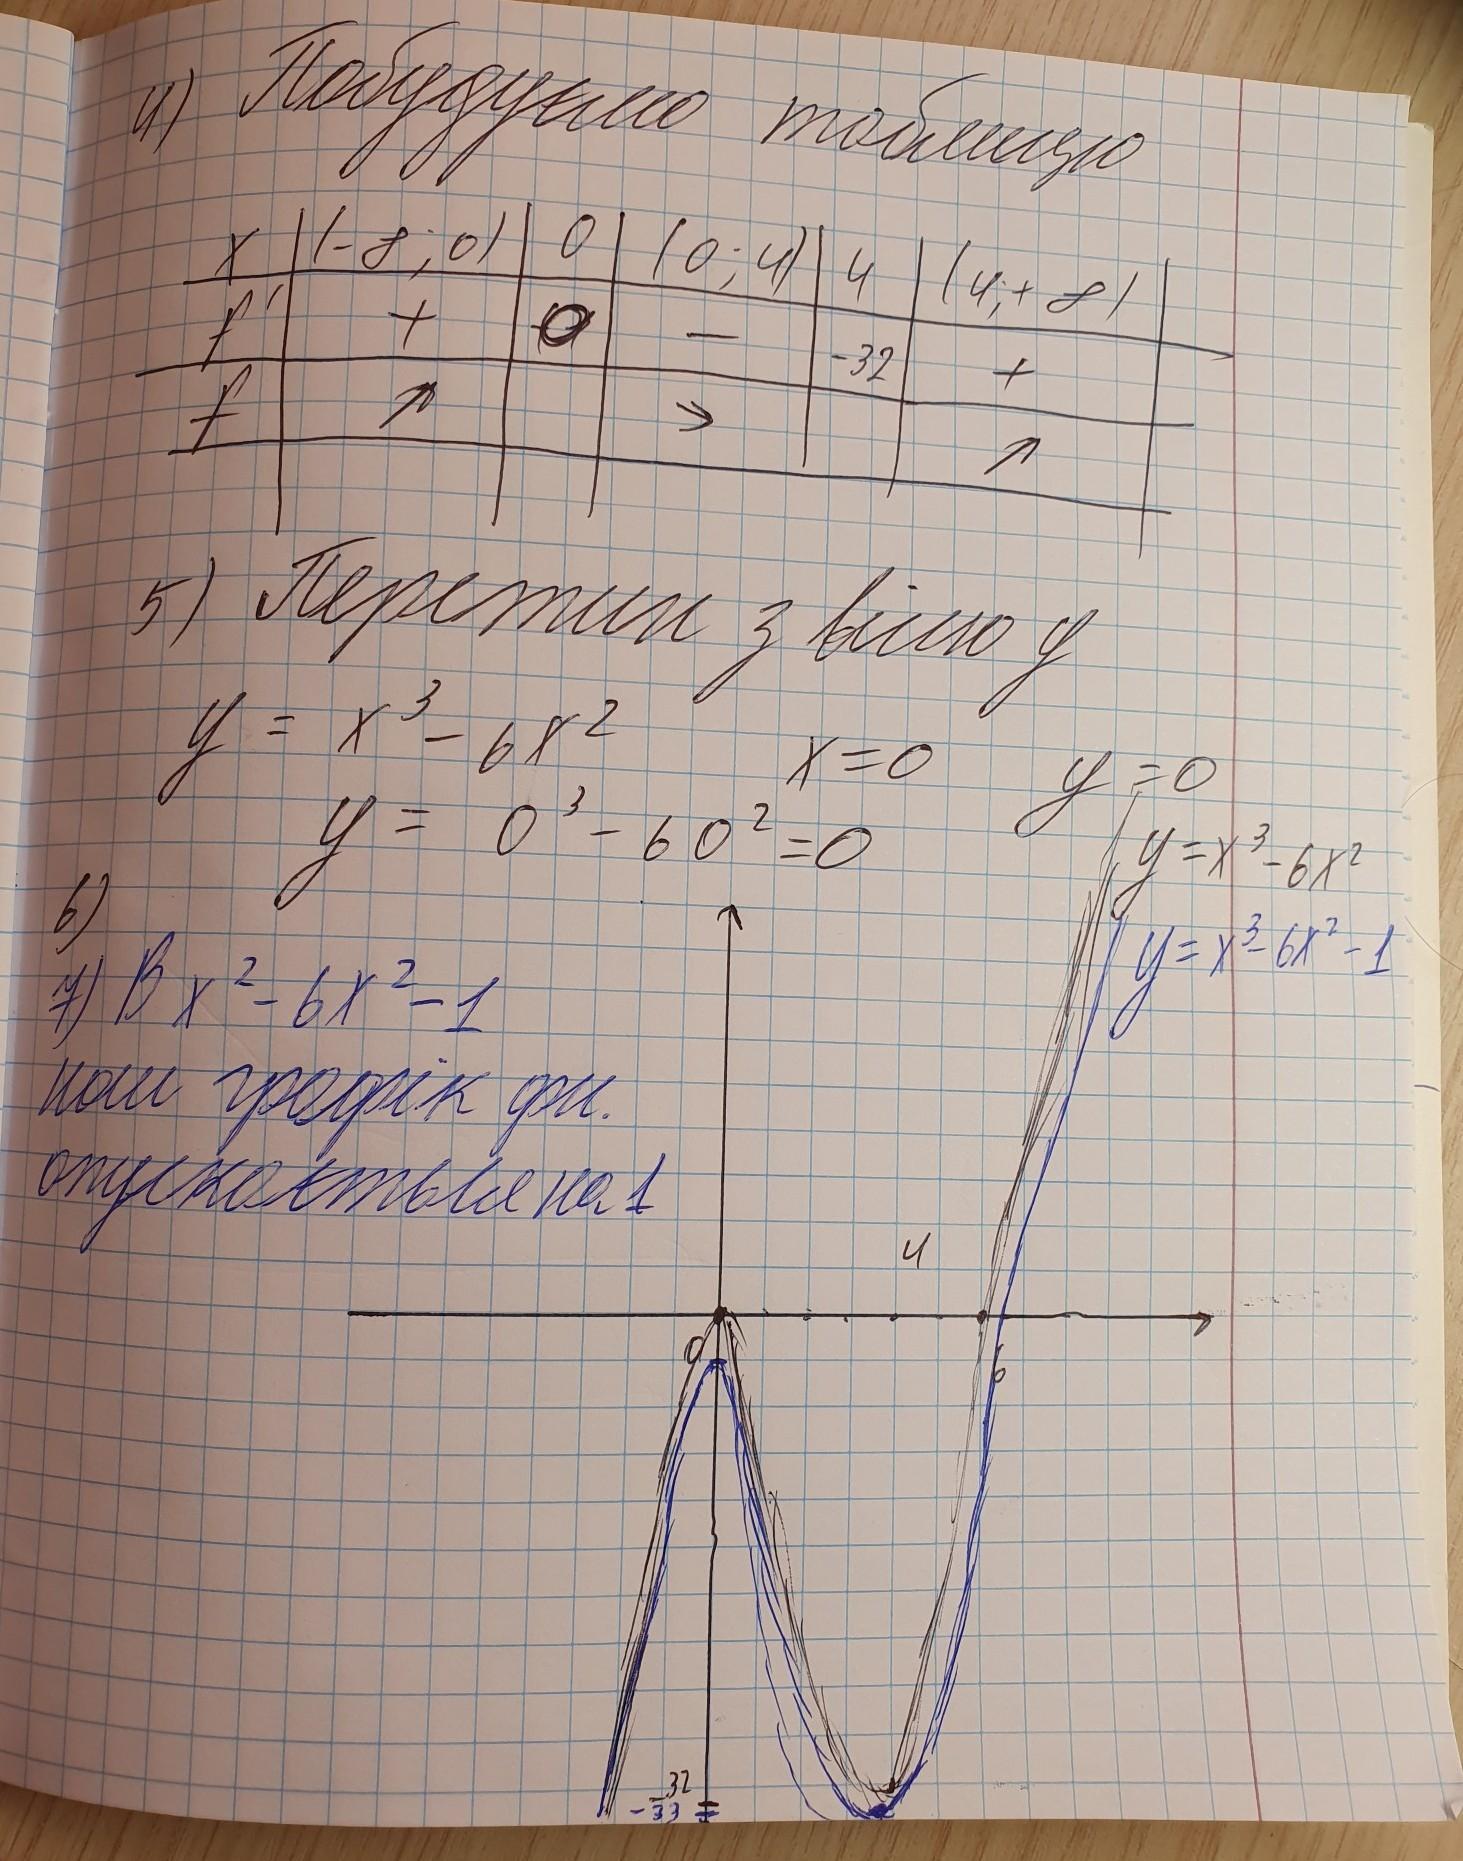 4) Побудуємо таблицю
x (-∞; 0) 0 (0; 4) 4 (4; +∞)
f' + 0 - -32 +
f ↗ ↘ ↗
5) Перетин з віссю y
y = x³ - 6x² x = 0 y = 0
y = 0³ - 60² = 0
y = x³ - 6x²
y = x³ - 6x² - 1
6)
7) В x² - 6x² - 1
наш графік фн.
опускається на 1
4
0
6
-32
-33